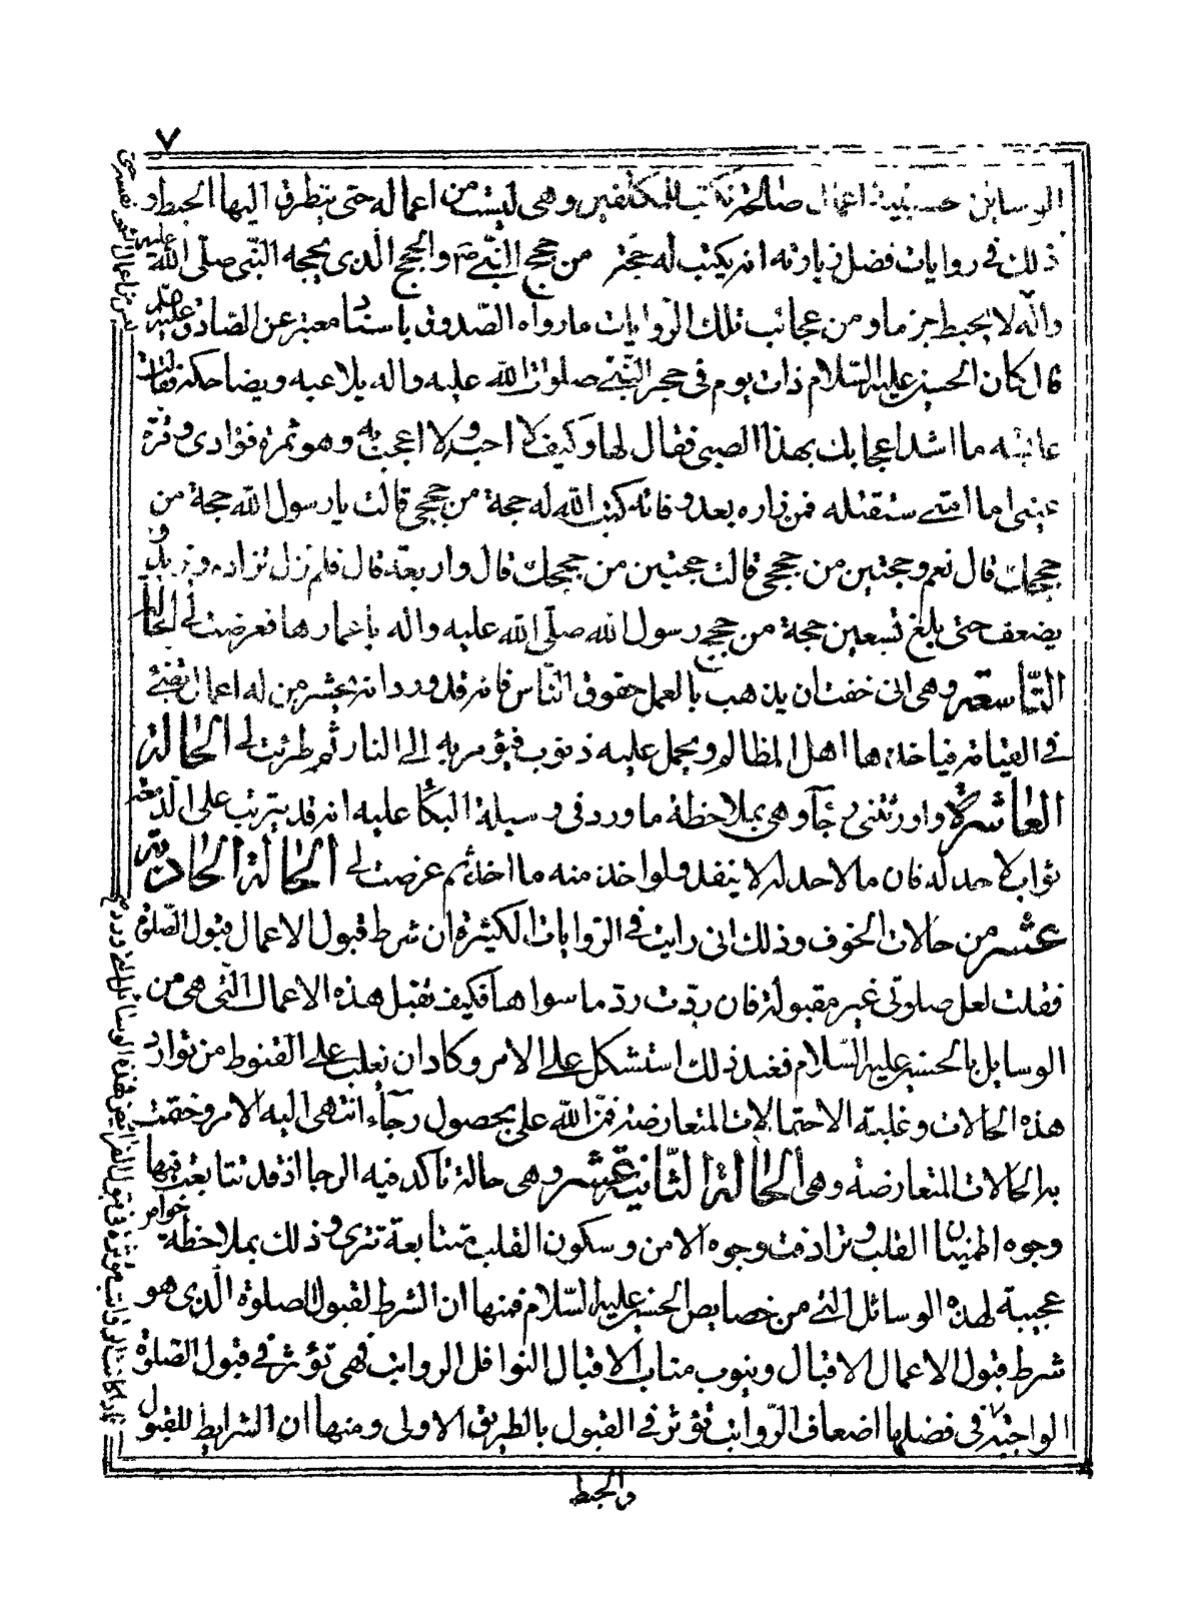 ٧
الوسائل حسينية اعمال صالحة تكتب للمكلفين وهى ليست من اعماله حتى يتطرق اليها الحبط و
ذلك فى روايات فضل زيارته انه يكتب له حجة من حجج النبى ص والحجج الذى يحجه النبى صلى الله عليه
واله لا يحبط جزما ومن عجائب تلك الروايات ما رواه الصدوق باسناد معتبر عن الصادق عليه
قال كان الحسين عليه السلام ذات يوم فى حجر النبى صلوات الله عليه واله يلاعبه ويضاحكه فقالت
عايشه ما اشد اعجابك بهذا الصبى فقال لها وكيف لا احبه ولا اعجب به وهو ثمرة فؤادى وقرة
عينى اما امتى ستقتله فمن زاره بعد وفاته كتب الله له حجة من حججى قالت يا رسول الله حجة من
حججك قال نعم وحجتين من حججى قالت حجتين من حججك قال واربعة قال فلم تزل تزاده ويزيد و
يضعف حتى بلغ تسعين حجة من حجج رسول الله صلى الله عليه واله باعمارها فعرضت لى الحالة
التاسعة وهى انى خفت ان يذهب بالعمل حقوق الناس فانه قد ورد انه يحشر من له اعمال تضئ
فى القيامة فياخذها اهل المظالم ويحمل عليه ذنوب فيؤمر به الى النار ثم طرئت لى الحالة
العاشرة واورثتنى رجآء وهى بملاحظة ما ورد فى وسيلة البكاء عليه انه قد يترتب على الدمعة
ثواب لا حد له فان ما لا حد له لا ينفد ولو اخذ منه ما اخذ ثم عرضت لى الحالة الحادية
عشر من حالات الخوف وذلك انى رايت فى الروايات الكثيرة ان شرط قبول الاعمال قبول الصلوة
فقلت لعل صلوتى غير مقبولة فان ردّت ردّ ما سواها فكيف تقبل هذه الاعمال التى هى من
الوسايل بالحسين عليه السلام فعند ذلك استشكل على الامر وكاد ان يغلب على القنوط من توارد
هذه الحالات وغلبة الاحتمالات المتعارضة فمنّ الله على بحصول رجآء انتهى اليه الامر وختمت
به الحالات المتعارضة وهى الحالة الثانية عشر وهى حالة تاكد فيه الرجا اذ قد تتابعت فيها
وجوه اطمينان القلب وترادفت وجوه الامن وسكون القلب متتابعة تترى وذلك بملاحظة خواص
عجيبة لهذه الوسائل التى من خصايص الحسين عليه السلام فمنها ان الشرط لقبول الصلوة الذى هو
شرط قبول الاعمال الاقبال وينوب مناب الاقبال النوافل الرواتب فهى تؤثر فى قبول الصلوة
الواجبة فى فضلها اضعاف الرواتب تؤثر فى القبول بالطريق الاولى ومنها ان الشرايط للقبول
والحبط